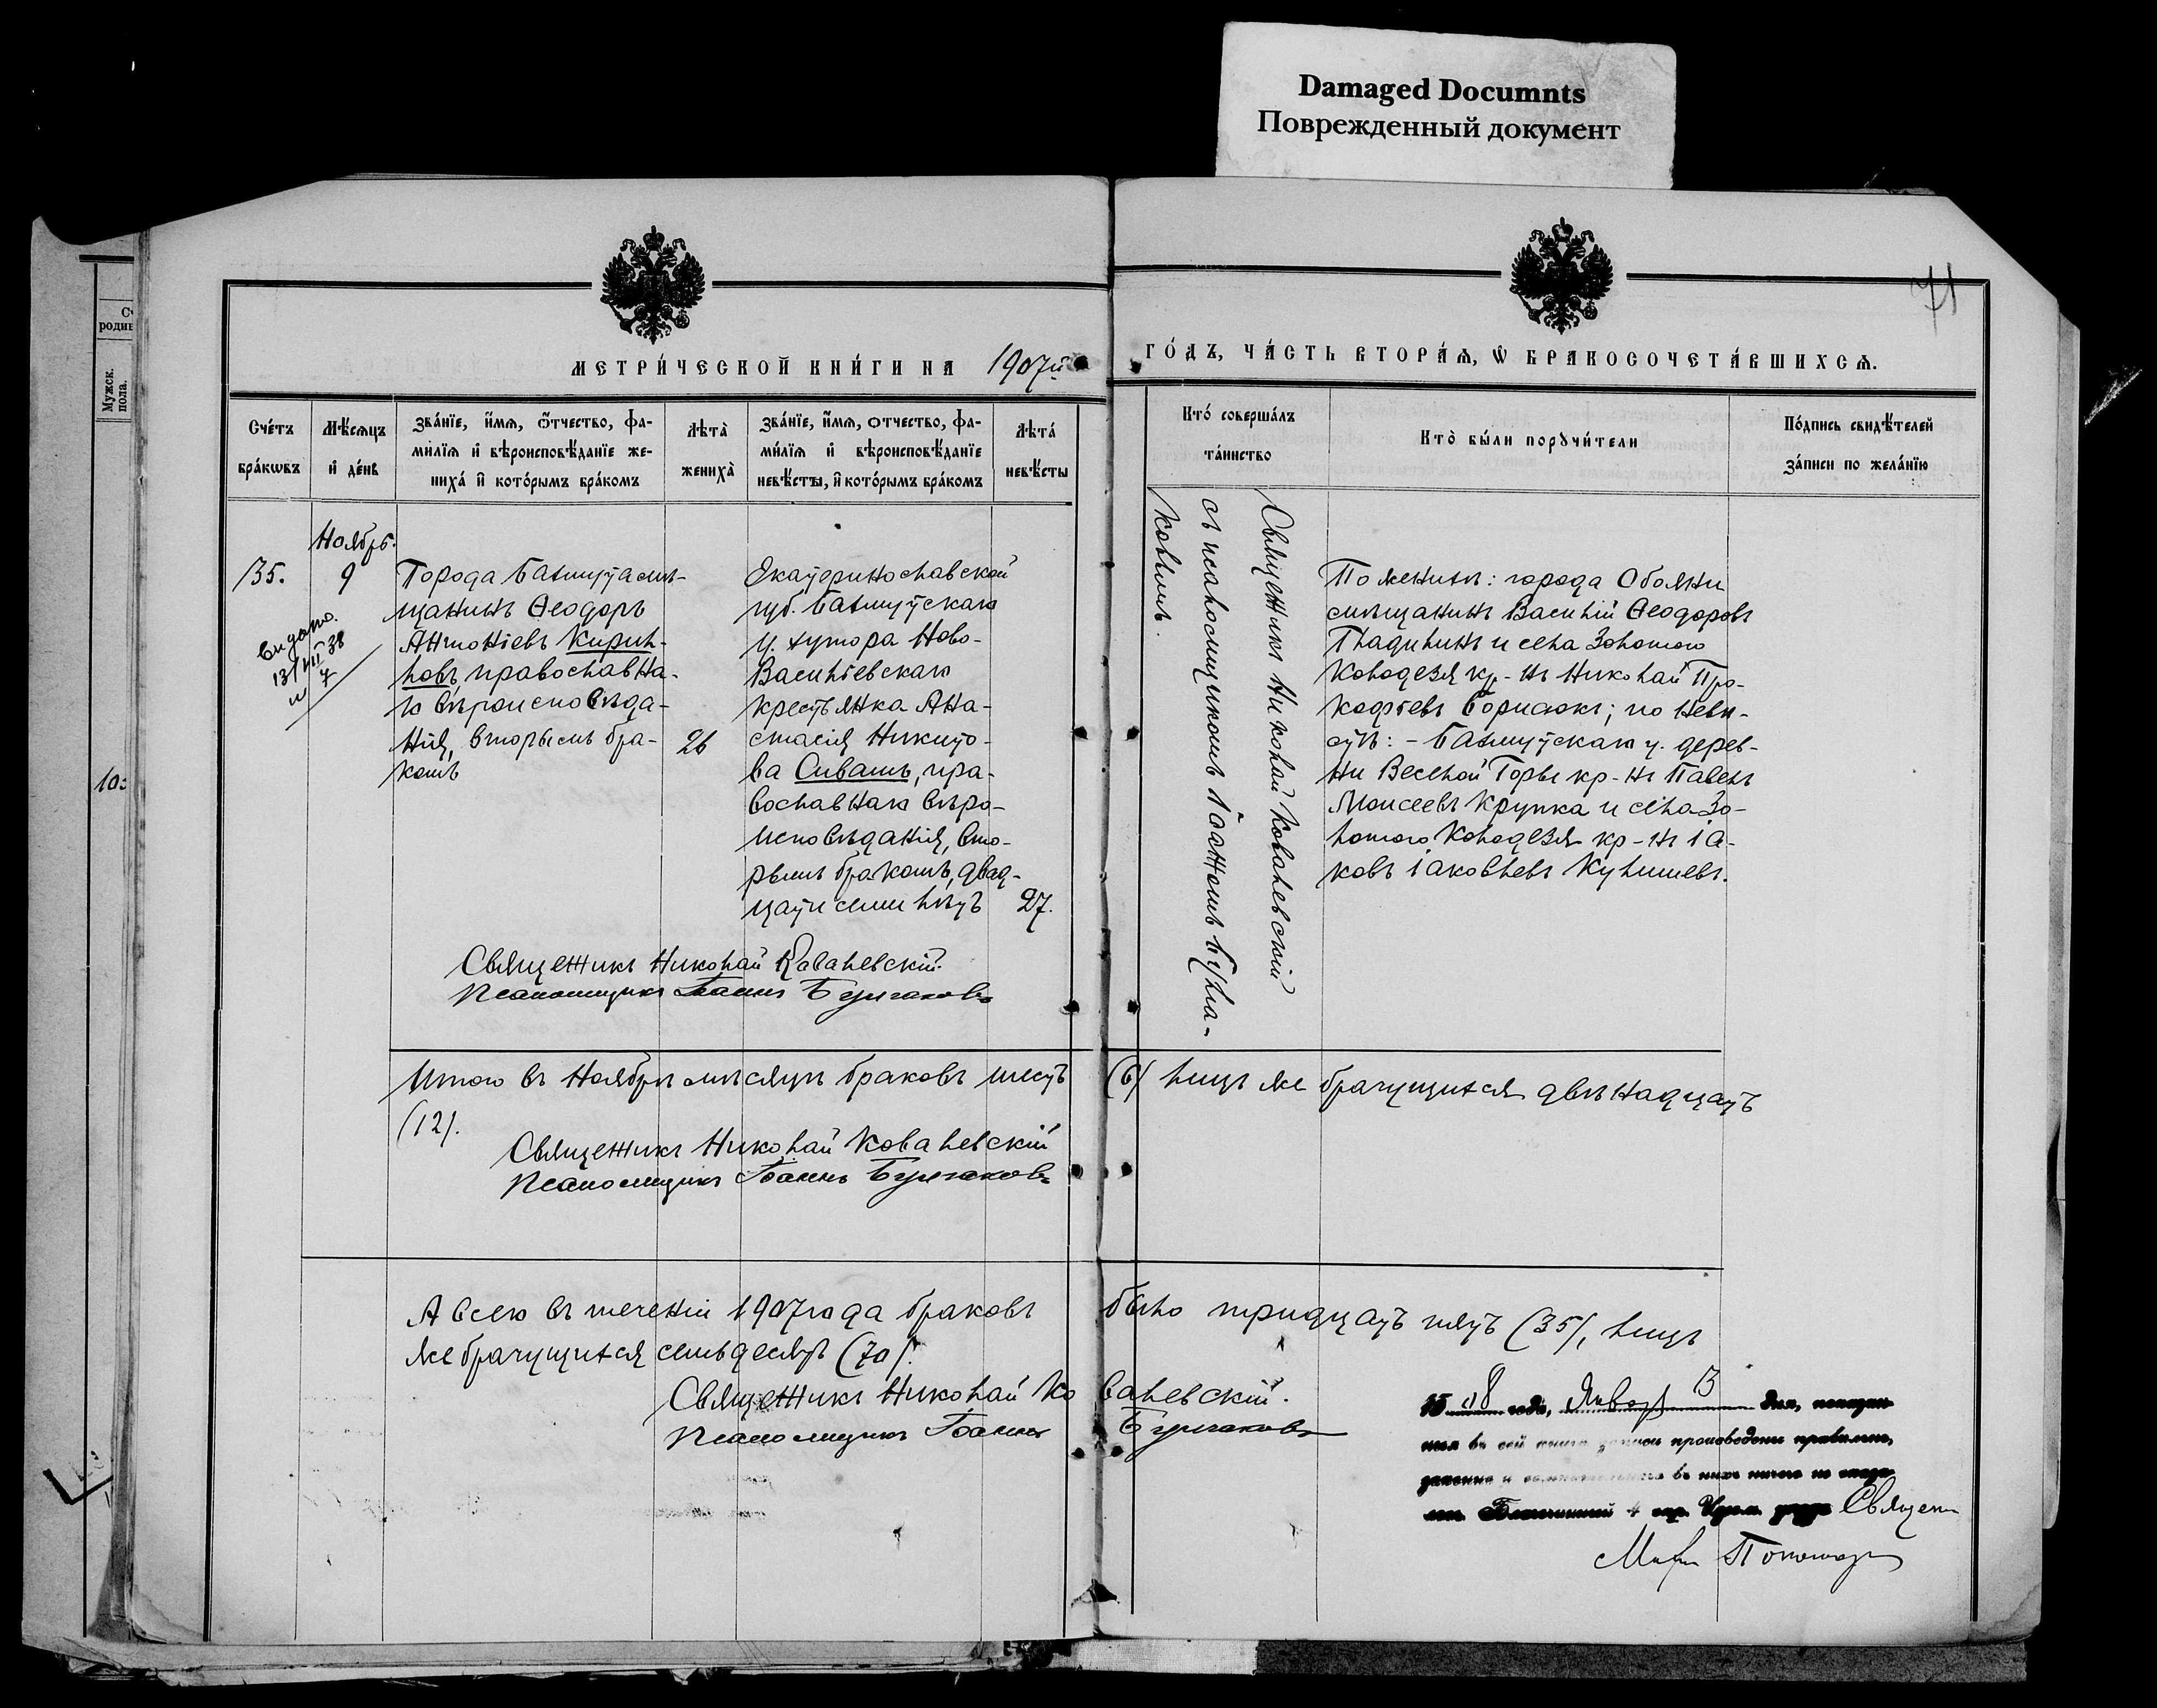 Damaged Documnts
Поврежденный документ
71
МЕТРИ́ЧЕСКОЙ КНИ́ГИ НА 1907й
ГО́ДЪ, ЧА́СТЬ ВТОРА́Ѧ, Ѡ҆ БРАКОСОЧЕТА́ВШИХСѦ.
Сче́тъ
бра́кѡвъ
Мѣ́сѧцъ
и҆ де́нь
Зва́нїе, и҆́мѧ, ѻ҆́тчество, фа-
ми́лїѧ и҆ вѣроисповѣ́данїе же-
ниха́ и҆ кото́рымъ бра́комъ
Лѣта̀
жениха̀
Зва́нїе, и҆́мѧ, отчество, фа-
ми́лїѧ и҆ вѣроисповѣ́данїе
невѣ́сты, и҆ кото́рымъ бра́комъ
Лѣта́
невѣ́сты
Кто́ соверша́лъ
та́инство
Кто̀ бы́ли порꙋчи́тели
По́дпись свидѣ́телей
за́писи по жела́нїю
Ноябрь.
35.
9
Выдано.
13/VII 38
Города Бахмута мѣ-
щанинъ Ѳеодоръ
Антоніевъ Кирил-
ловъ, православна-
го вѣроисповѣда-
нія, вторымъ бра-
комъ
26
Екатеринославской
губ. Бахмутскаго
у. хутора Ново-
Васильевскаго
крестьянка Ана-
стасія Никито-
ва Сивашъ, пра-
вославнаго вѣро-
исповѣданія, вто-
рымъ бракомъ, двад-
цати семи лѣтъ
27.
Священникъ Николай Ковалевскій
съ псаломщикомъ Іоанномъ Булга-
ковымъ.
По женихѣ: города Обояни
мѣщанинъ Василій Ѳеодоровъ
Гладилинъ и села Золотого
Колодезя кр-нъ Николай Про-
кофіевъ Борисюкъ; по невѣ-
стѣ: - Бахмутскаго у. дерев-
ни Веселой Горы кр-нъ Павелъ
Моисеевъ Крупка и села Зо-
лотого Колодезя кр-нъ Іа-
ковъ Іаковлевъ Кулишевъ.
Священникъ Николай Ковалевскій.
Псаломщикъ Іоаннъ Булгаковъ
Итого въ Ноябрѣ мѣсяцѣ браковъ шесть (6) лицъ же брачущихся двѣнадцать
(12).
Священникъ Николай Ковалевскій
Псаломщикъ Іоаннъ Булгаковъ
А всего въ теченіи 1907 года браковъ было тридцать пять (35), лицъ
же брачущихся семьдесятъ (70).
Священникъ Николай Ковалевскій.
Псаломщикъ Іоаннъ Булгаковъ
08 года, Января 13 дня, показан
ныя въ сей книгѣ записи произведены правильно,
законно и въ нихъ ничего не оказа
лось Благочинный 4 окр. Изюм. уѣзда Священ